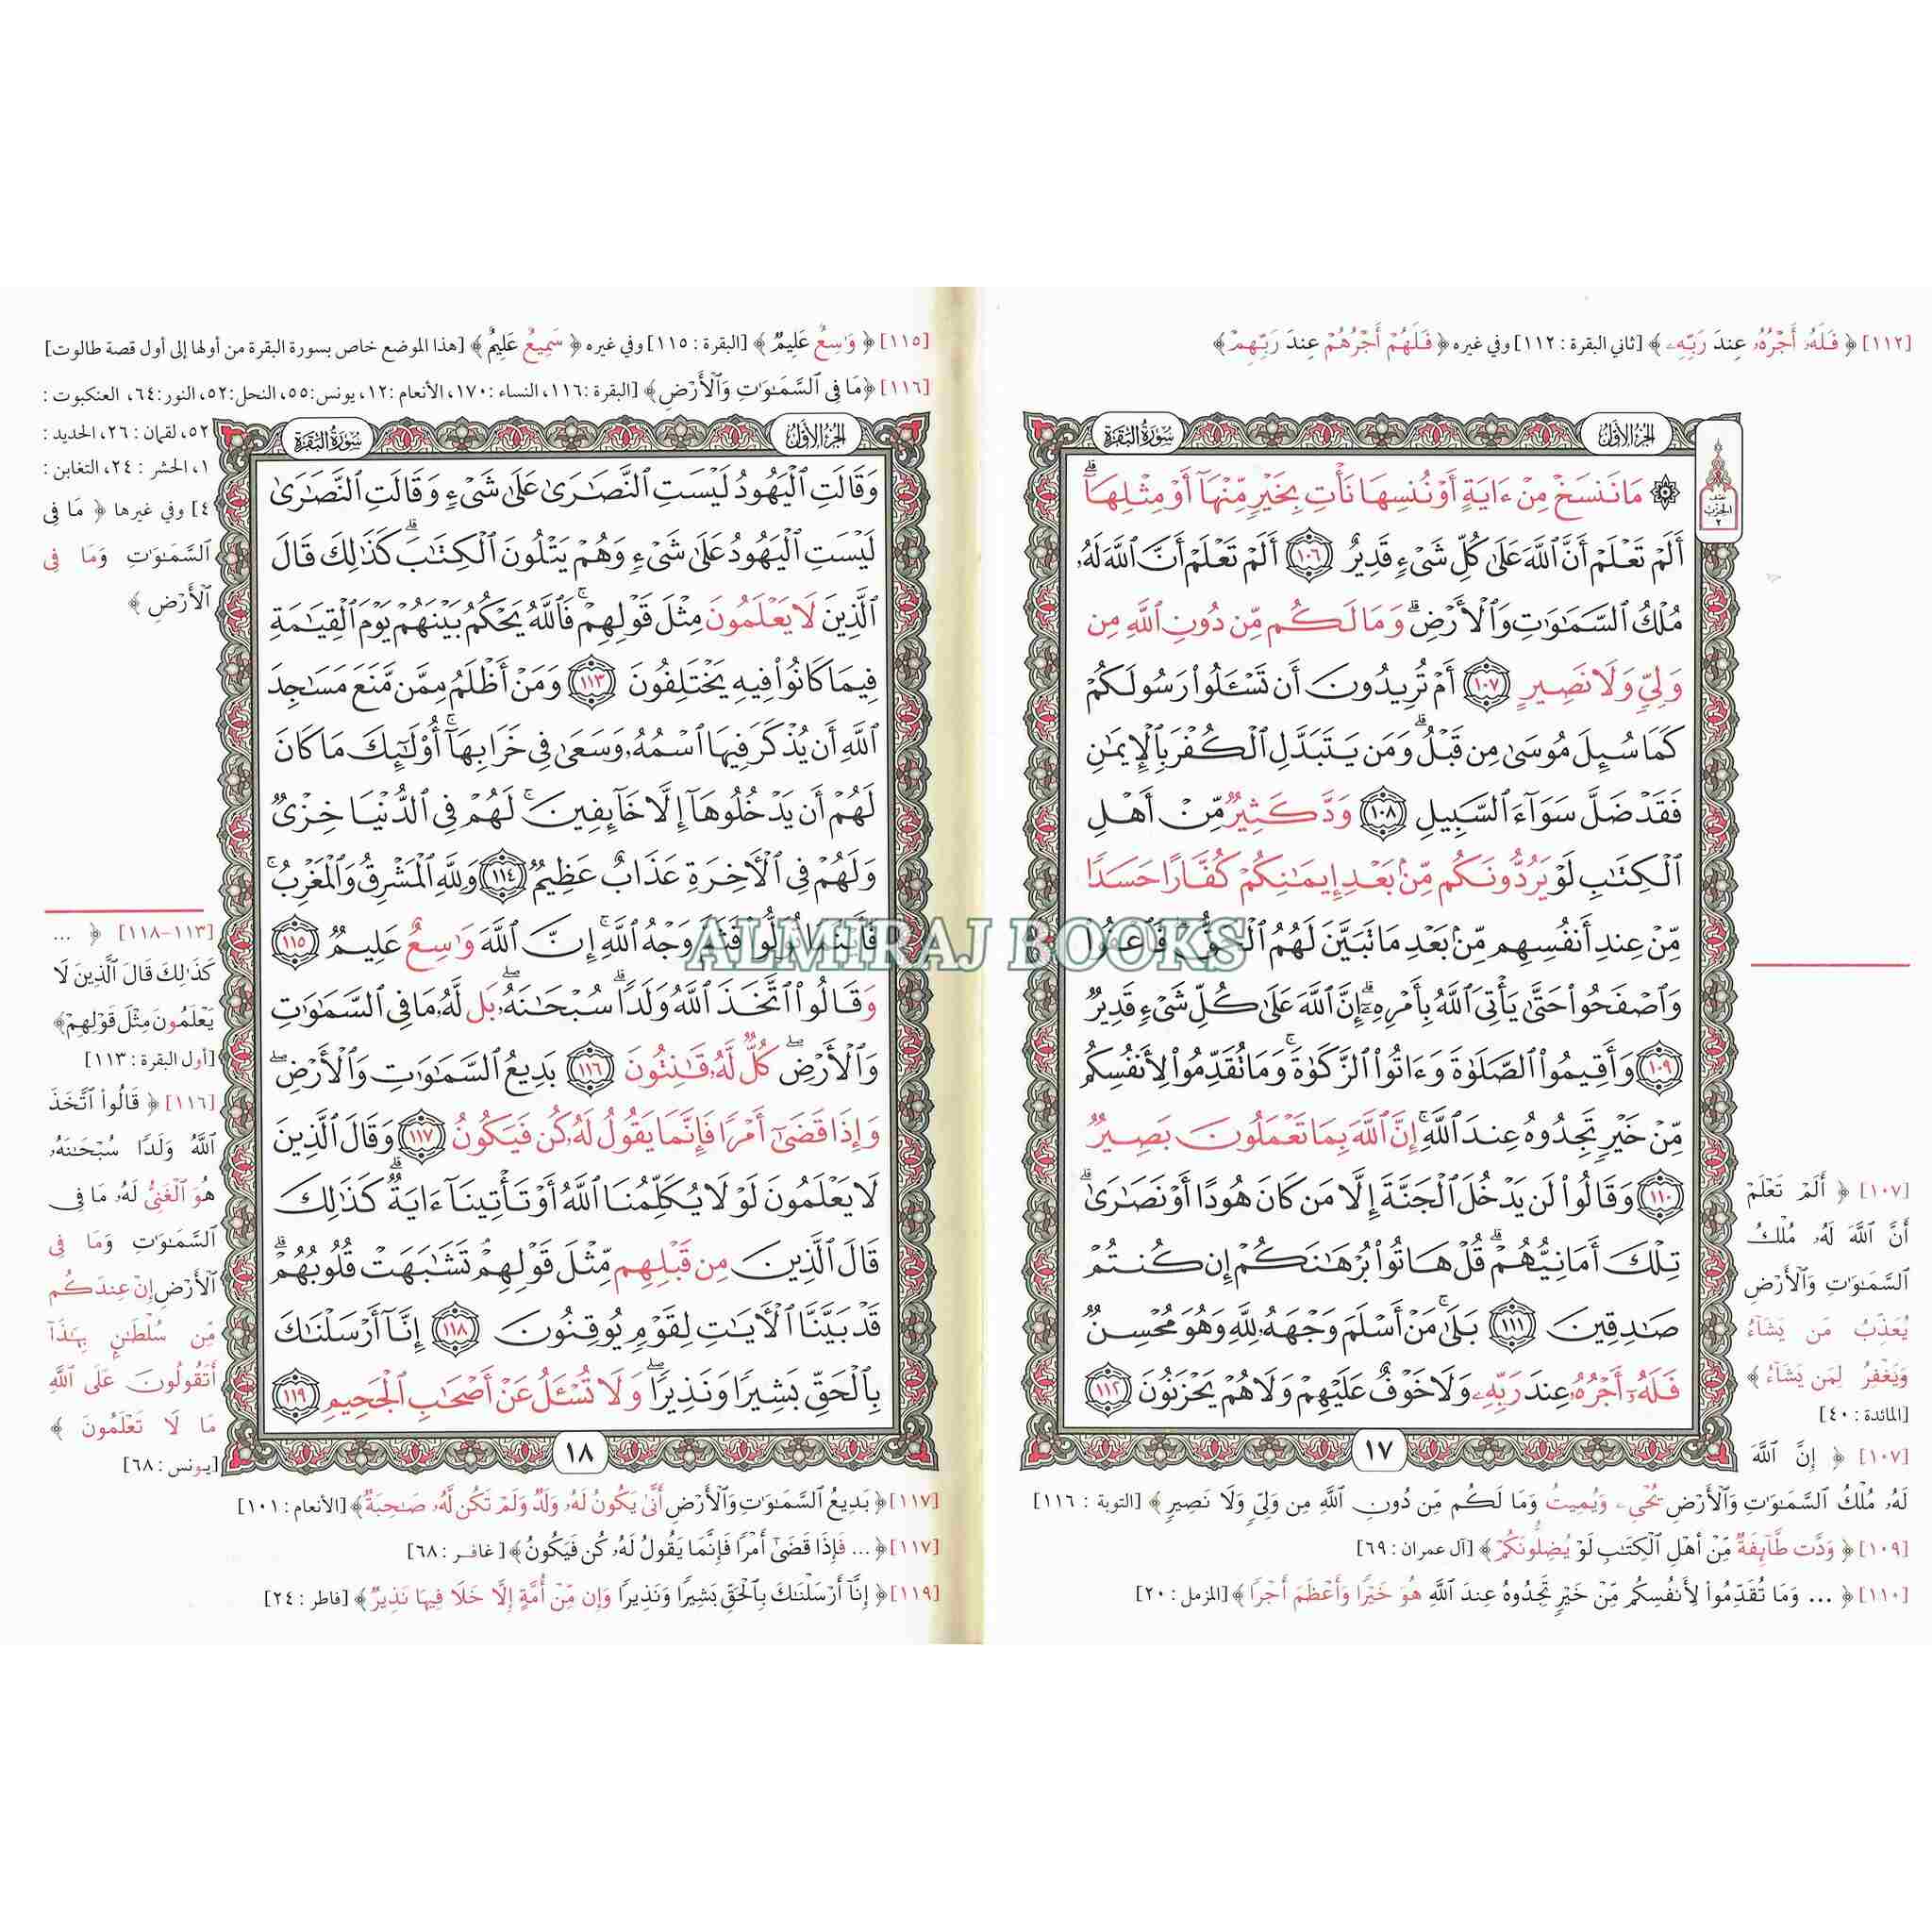 [١١٢] ﴿ فَلَهُۥٓ أَجْرُهُۥ عِندَ رَبِّهِۦ ﴾ [ثاني البقرة : ١١٢] وفي غيره ﴿ فَلَهُمْ أَجْرُهُمْ عِندَ رَبِّهِمْ ﴾
الجزء الأول
سورة البقرة
نصف
الحزب
٢
۞ مَا نَنسَخْ مِنْ ءَايَةٍ أَوْ نُنسِهَا نَأْتِ بِخَيْرٍ مِّنْهَآ أَوْ مِثْلِهَآ ۗ
أَلَمْ تَعْلَمْ أَنَّ ٱللَّهَ عَلَىٰ كُلِّ شَىْءٍ قَدِيرٌ ١٠٦ أَلَمْ تَعْلَمْ أَنَّ ٱللَّهَ لَهُۥ
مُلْكُ ٱلسَّمَٰوَٰتِ وَٱلْأَرْضِ ۗ وَمَا لَكُم مِّن دُونِ ٱللَّهِ مِن
وَلِىٍّ وَلَا نَصِيرٍ ١٠٧ أَمْ تُرِيدُونَ أَن تَسْـَٔلُوا۟ رَسُولَكُمْ
كَمَا سُئِلَ مُوسَىٰ مِن قَبْلُ ۗ وَمَن يَتَبَدَّلِ ٱلْكُفْرَ بِٱلْإِيمَٰنِ
فَقَدْ ضَلَّ سَوَآءَ ٱلسَّبِيلِ ١٠٨ وَدَّ كَثِيرٌ مِّنْ أَهْلِ
ٱلْكِتَٰبِ لَوْ يَرُدُّونَكُم مِّنۢ بَعْدِ إِيمَٰنِكُمْ كُفَّارًا حَسَدًا
مِّنْ عِندِ أَنفُسِهِم مِّنۢ بَعْدِ مَا تَبَيَّنَ لَهُمُ ٱلْحَقُّ ۖ فَٱعْفُوا۟
وَٱصْفَحُوا۟ حَتَّىٰ يَأْتِىَ ٱللَّهُ بِأَمْرِهِۦٓ ۗ إِنَّ ٱللَّهَ عَلَىٰ كُلِّ شَىْءٍ قَدِيرٌ
١٠٩ وَأَقِيمُوا۟ ٱلصَّلَوٰةَ وَءَاتُوا۟ ٱلزَّكَوٰةَ ۚ وَمَا تُقَدِّمُوا۟ لِأَنفُسِكُم
مِّنْ خَيْرٍ تَجِدُوهُ عِندَ ٱللَّهِ ۗ إِنَّ ٱللَّهَ بِمَا تَعْمَلُونَ بَصِيرٌ
١١٠ وَقَالُوا۟ لَن يَدْخُلَ ٱلْجَنَّةَ إِلَّا مَن كَانَ هُودًا أَوْ نَصَٰرَىٰ ۗ
تِلْكَ أَمَانِيُّهُمْ ۗ قُلْ هَاتُوا۟ بُرْهَٰنَكُمْ إِن كُنتُمْ
صَٰدِقِينَ ١١١ بَلَىٰ مَنْ أَسْلَمَ وَجْهَهُۥ لِلَّهِ وَهُوَ مُحْسِنٌ
فَلَهُۥٓ أَجْرُهُۥ عِندَ رَبِّهِۦ وَلَا خَوْفٌ عَلَيْهِمْ وَلَا هُمْ يَحْزَنُونَ ١١٢
١٧
[١٠٧] ﴿ أَلَمْ تَعْلَمْ
أَنَّ ٱللَّهَ لَهُۥ مُلْكُ
ٱلسَّمَٰوَٰتِ وَٱلْأَرْضِ
يُعَذِّبُ مَن يَشَآءُ
وَيَغْفِرُ لِمَن يَشَآءُ ﴾
[المائدة : ٤٠]
[١٠٧] ﴿ إِنَّ ٱللَّهَ
لَهُۥ مُلْكُ ٱلسَّمَٰوَٰتِ وَٱلْأَرْضِ يُحْىِۦ وَيُمِيتُ وَمَا لَكُم مِّن دُونِ ٱللَّهِ مِن وَلِىٍّ وَلَا نَصِيرٍ ﴾ [التوبة : ١١٦]
[١٠٩] ﴿ وَدَّت طَّآئِفَةٌ مِّنْ أَهْلِ ٱلْكِتَٰبِ لَوْ يُضِلُّونَكُمْ ﴾ [آل عمران : ٦٩]
[١١٠] ﴿ ... وَمَا تُقَدِّمُوا۟ لِأَنفُسِكُم مِّنْ خَيْرٍ تَجِدُوهُ عِندَ ٱللَّهِ هُوَ خَيْرًا وَأَعْظَمَ أَجْرًا ﴾ [المزمل : ٢٠]
[١١٥] ﴿ وَٰسِعٌ عَلِيمٌ ﴾ [البقرة : ١١٥] وفي غيره ﴿ سَمِيعٌ عَلِيمٌ ﴾ [هذا الموضع خاص بسورة البقرة من أولها إلى أول قصة طالوت]
[١١٦] ﴿ مَا فِى ٱلسَّمَٰوَٰتِ وَٱلْأَرْضِ ﴾ [البقرة :١١٦، النساء :١٧٠، الأنعام :١٢، يونس:٥٥، النحل:٥٢، النور:٦٤، العنكبوت :
٥٢، لقمان : ٢٦، الحديد :
١، الحشر : ٢٤، التغابن :
٤] وفي غيرها ﴿ مَا فِى
ٱلسَّمَٰوَٰتِ وَمَا فِى
ٱلْأَرْضِ ﴾
الجزء الأول
سورة البقرة
وَقَالَتِ ٱلْيَهُودُ لَيْسَتِ ٱلنَّصَٰرَىٰ عَلَىٰ شَىْءٍ وَقَالَتِ ٱلنَّصَٰرَىٰ
لَيْسَتِ ٱلْيَهُودُ عَلَىٰ شَىْءٍ وَهُمْ يَتْلُونَ ٱلْكِتَٰبَ ۗ كَذَٰلِكَ قَالَ
ٱلَّذِينَ لَا يَعْلَمُونَ مِثْلَ قَوْلِهِمْ ۚ فَٱللَّهُ يَحْكُمُ بَيْنَهُمْ يَوْمَ ٱلْقِيَٰمَةِ
فِيمَا كَانُوا۟ فِيهِ يَخْتَلِفُونَ ١١٣ وَمَنْ أَظْلَمُ مِمَّن مَّنَعَ مَسَٰجِدَ
ٱللَّهِ أَن يُذْكَرَ فِيهَا ٱسْمُهُۥ وَسَعَىٰ فِى خَرَابِهَآ ۚ أُو۟لَٰٓئِكَ مَا كَانَ
لَهُمْ أَن يَدْخُلُوهَآ إِلَّا خَآئِفِينَ ۚ لَهُمْ فِى ٱلدُّنْيَا خِزْىٌ
وَلَهُمْ فِى ٱلْءَاخِرَةِ عَذَابٌ عَظِيمٌ ١١٤ وَلِلَّهِ ٱلْمَشْرِقُ وَٱلْمَغْرِبُ ۚ
فَأَيْنَمَا تُوَلُّوا۟ فَثَمَّ وَجْهُ ٱللَّهِ ۚ إِنَّ ٱللَّهَ وَٰسِعٌ عَلِيمٌ ١١٥
وَقَالُوا۟ ٱتَّخَذَ ٱللَّهُ وَلَدًا ۗ سُبْحَٰنَهُۥ ۖ بَل لَّهُۥ مَا فِى ٱلسَّمَٰوَٰتِ
وَٱلْأَرْضِ ۖ كُلٌّ لَّهُۥ قَٰنِتُونَ ١١٦ بَدِيعُ ٱلسَّمَٰوَٰتِ وَٱلْأَرْضِ ۖ
وَإِذَا قَضَىٰٓ أَمْرًا فَإِنَّمَا يَقُولُ لَهُۥ كُن فَيَكُونُ ١١٧ وَقَالَ ٱلَّذِينَ
لَا يَعْلَمُونَ لَوْلَا يُكَلِّمُنَا ٱللَّهُ أَوْ تَأْتِينَآ ءَايَةٌ ۗ كَذَٰلِكَ
قَالَ ٱلَّذِينَ مِن قَبْلِهِم مِّثْلَ قَوْلِهِمْ ۘ تَشَٰبَهَتْ قُلُوبُهُمْ ۗ
قَدْ بَيَّنَّا ٱلْءَايَٰتِ لِقَوْمٍ يُوقِنُونَ ١١٨ إِنَّآ أَرْسَلْنَٰكَ
بِٱلْحَقِّ بَشِيرًا وَنَذِيرًا ۖ وَلَا تُسْـَٔلُ عَنْ أَصْحَٰبِ ٱلْجَحِيمِ ١١٩
١٨
[١١٣-١١٨] ﴿ ...
كَذَٰلِكَ قَالَ ٱلَّذِينَ لَا
يَعْلَمُونَ مِثْلَ قَوْلِهِمْ ﴾
[أول البقرة : ١١٣]
[١١٦] ﴿ قَالُوا۟ ٱتَّخَذَ
ٱللَّهُ وَلَدًا سُبْحَٰنَهُۥ
هُوَ ٱلْغَنِىُّ لَهُۥ مَا فِى
ٱلسَّمَٰوَٰتِ وَمَا فِى
ٱلْأَرْضِ إِنْ عِندَكُم
مِّن سُلْطَٰنٍۭ بِهَٰذَآ
أَتَقُولُونَ عَلَى ٱللَّهِ
مَا لَا تَعْلَمُونَ ﴾
[يونس : ٦٨]
[١١٧] ﴿ بَدِيعُ ٱلسَّمَٰوَٰتِ وَٱلْأَرْضِ أَنَّىٰ يَكُونُ لَهُۥ وَلَدٌ وَلَمْ تَكُن لَّهُۥ صَٰحِبَةٌ ﴾ [الأنعام : ١٠١]
[١١٧] ﴿ ... فَإِذَا قَضَىٰٓ أَمْرًا فَإِنَّمَا يَقُولُ لَهُۥ كُن فَيَكُونُ ﴾ [غافر : ٦٨]
[١١٩] ﴿ إِنَّآ أَرْسَلْنَٰكَ بِٱلْحَقِّ بَشِيرًا وَنَذِيرًا وَإِن مِّنْ أُمَّةٍ إِلَّا خَلَا فِيهَا نَذِيرٌ ﴾ [فاطر : ٢٤]
ALMIRAJ BOOKS